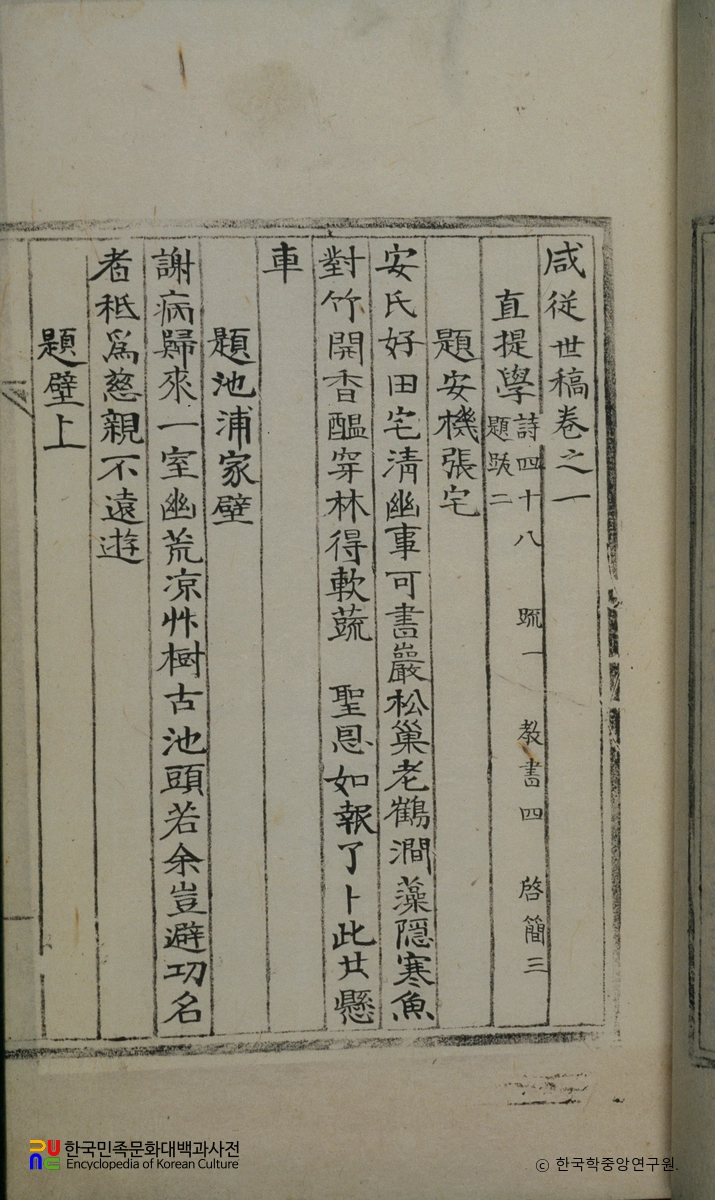 咸從世稿卷之一
直提學 詩四十八 疏一 教書四 啓簡三
題跋二
題安機張宅
安氏好田宅淸幽事可書巖松巢老鶴澗藻隱寒魚
對竹開香醞穿林得軟蔬 聖恩如報了卜此共懸
車
題池浦家壁
謝病歸來一室幽荒凉艸樹古池頭若余豈避功名
者秪爲慈親不遠遊
題壁上
한국민족문화대백과사전
Encyclopedia of Korean Culture
© 한국학중앙연구원.